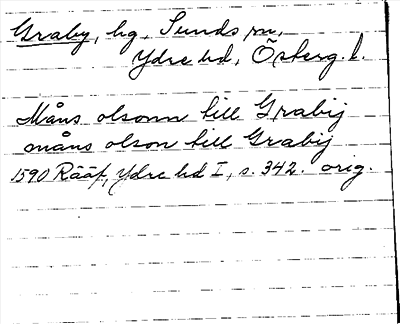 Graby, hg, Sunds sn,
Ydre hd, Österg. l.
Måns olsonn till Grabij
måns olson till Grabij
1590 Rääf, Ydre hd I, s. 342. orig.